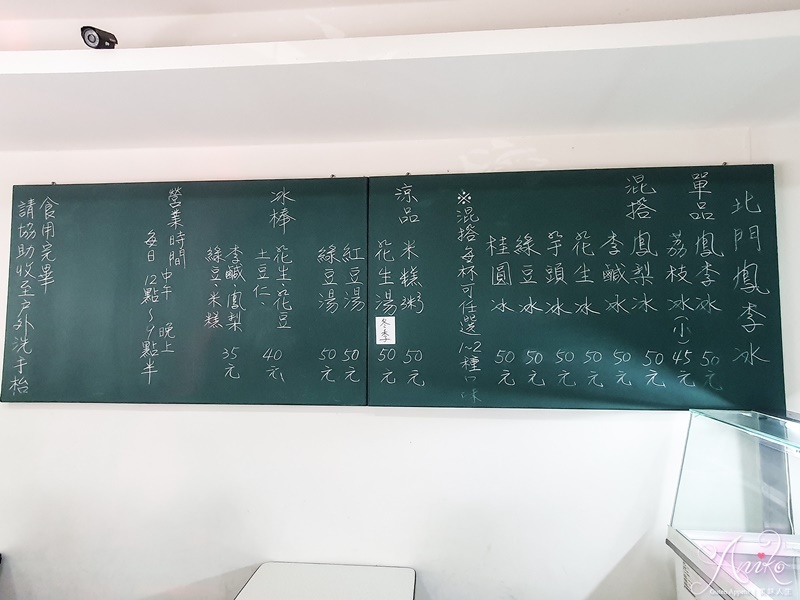 北門鳳李冰
單品 鳳李冰 50元
荔枝冰(小) 45元
混搭 鳳梨冰 50元
李鹹冰 50元
花生冰 50元
芋頭冰 50元
綠豆冰 50元
桂圓冰 50元
※混搭每杯可任選1~2種口味
涼品 米糕粥 50元
花生湯 冬季 50元
紅豆湯 50元
綠豆湯 50元
冰棒 花生、花豆
土豆仁、 40元
李鹹、鳳梨
綠豆、米糕 35元
營業時間 中午 晚上
每日 12點~9點半
食用完畢
請協助收至戶外洗手枱
Aniko